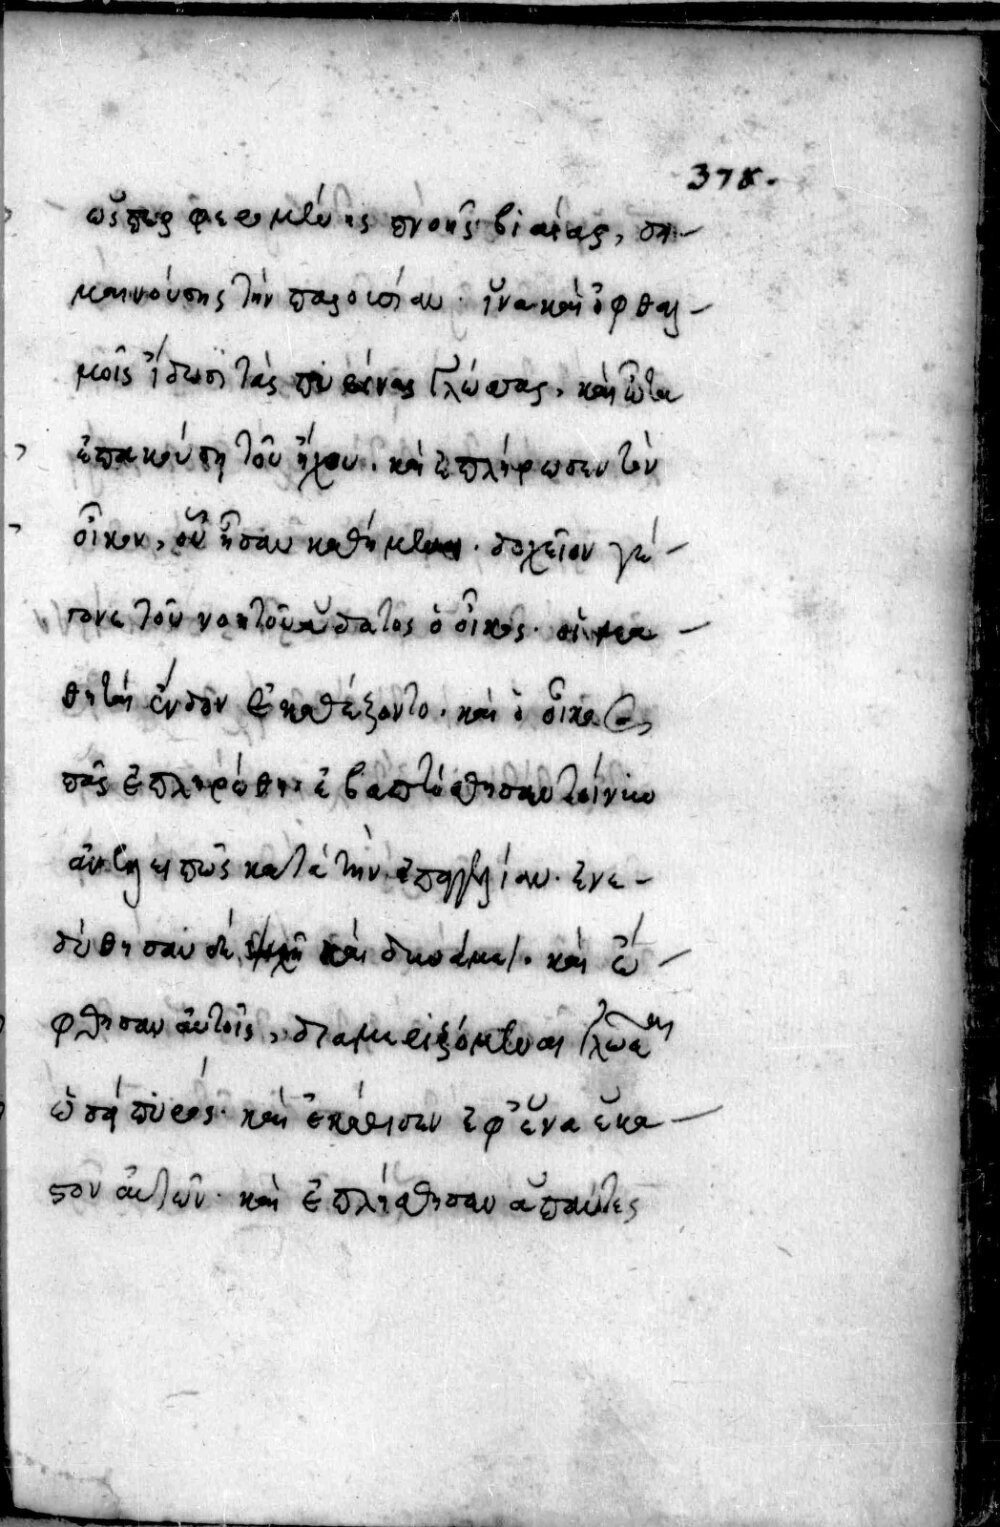 378.
ὥσπερ φερομένης πνοῆς βιαίας, ση-
μαινούσης τὴν παρουσίαν. ἵνα καὶ ὀφθαλ-
μοῖς ἴδωσι τὰς πυρίνας γλώσσας. καὶ ὦτα
ἐπακούση τοῦ ἤχου. καὶ ἐπλήρωσεν τὸν
οἶκον, οὗ ἦσαν καθήμενοι. δοχεῖον γέ-
γονε τοῦ νοητοῦ ὕδατος ὁ οἶκος. οἱ μα-
θηταὶ ἔνδον ἐκαθέζοντο. καὶ ὁ οἶκος
πᾶς ἐπληρώθη. ἐβαπτίσθησαν τοίνυν
ἀνελλειπῶς κατὰ τὴν ἐπαγγελίαν. ἐνε-
δύθησαν δὲ ψυχῆ καὶ σῶμα. καὶ ὤ-
φθησαν αὐτοῖς, διαμεριζόμεναι γλῶσσαι
ὡσεὶ πυρός. καὶ ἐκάθισεν ἐφ' ἕνα ἕκα-
στον αὐτῶν. καὶ ἐπλήσθησαν ἅπαντες